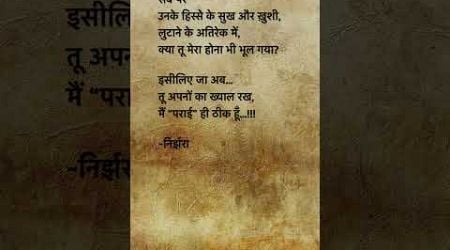 सब पर
उनके हिस्से के सुख और ख़ुशी,
लुटाने के अतिरेक में,
क्या तू मेरा होना भी भूल गया?
इसीलिए जा अब...
तू अपनों का ख्याल रख,
मैं "पराई" ही ठीक हूँ...!!!
-निर्झरा